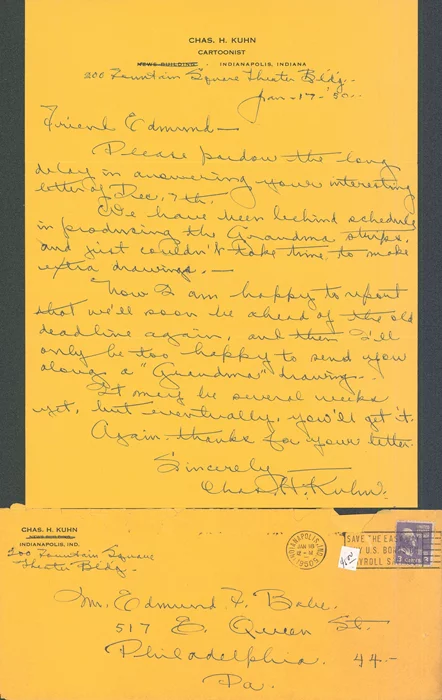 CHAS. H. KUHN
CARTOONIST
NEWS BUILDING · INDIANAPOLIS, INDIANA
200 Fountain Square Theater Bldg.-
Jan-17-'50-
Friend Edmund—
Please pardon the long
delay in answering your interesting
letter of Dec. 7th.
We have been behind schedule
in producing the Grandma strips,
and just couldn't take time to make
extra drawings.—
Now I am happy to report
that we'll soon be ahead of the old
deadline again, and then I'll
only be too happy to send you
along a "Grandma" drawing.-
It may be several weeks
yet, but eventually, you'll get it.
Again- thanks for your letter.
Sincerely—
Chas. H. Kuhn.
CHAS. H. KUHN
NEWS BUILDING
INDIANAPOLIS, IND.
200 Fountain Square
Theater Bldg-
INDIANAPOLIS, IND.
JAN 18
1950
SAVE THE EASY
U.S. BO
YROLL SA
Mr. Edmund F.
517 E. Queen St.
Philadelphia 44.-
Pa.